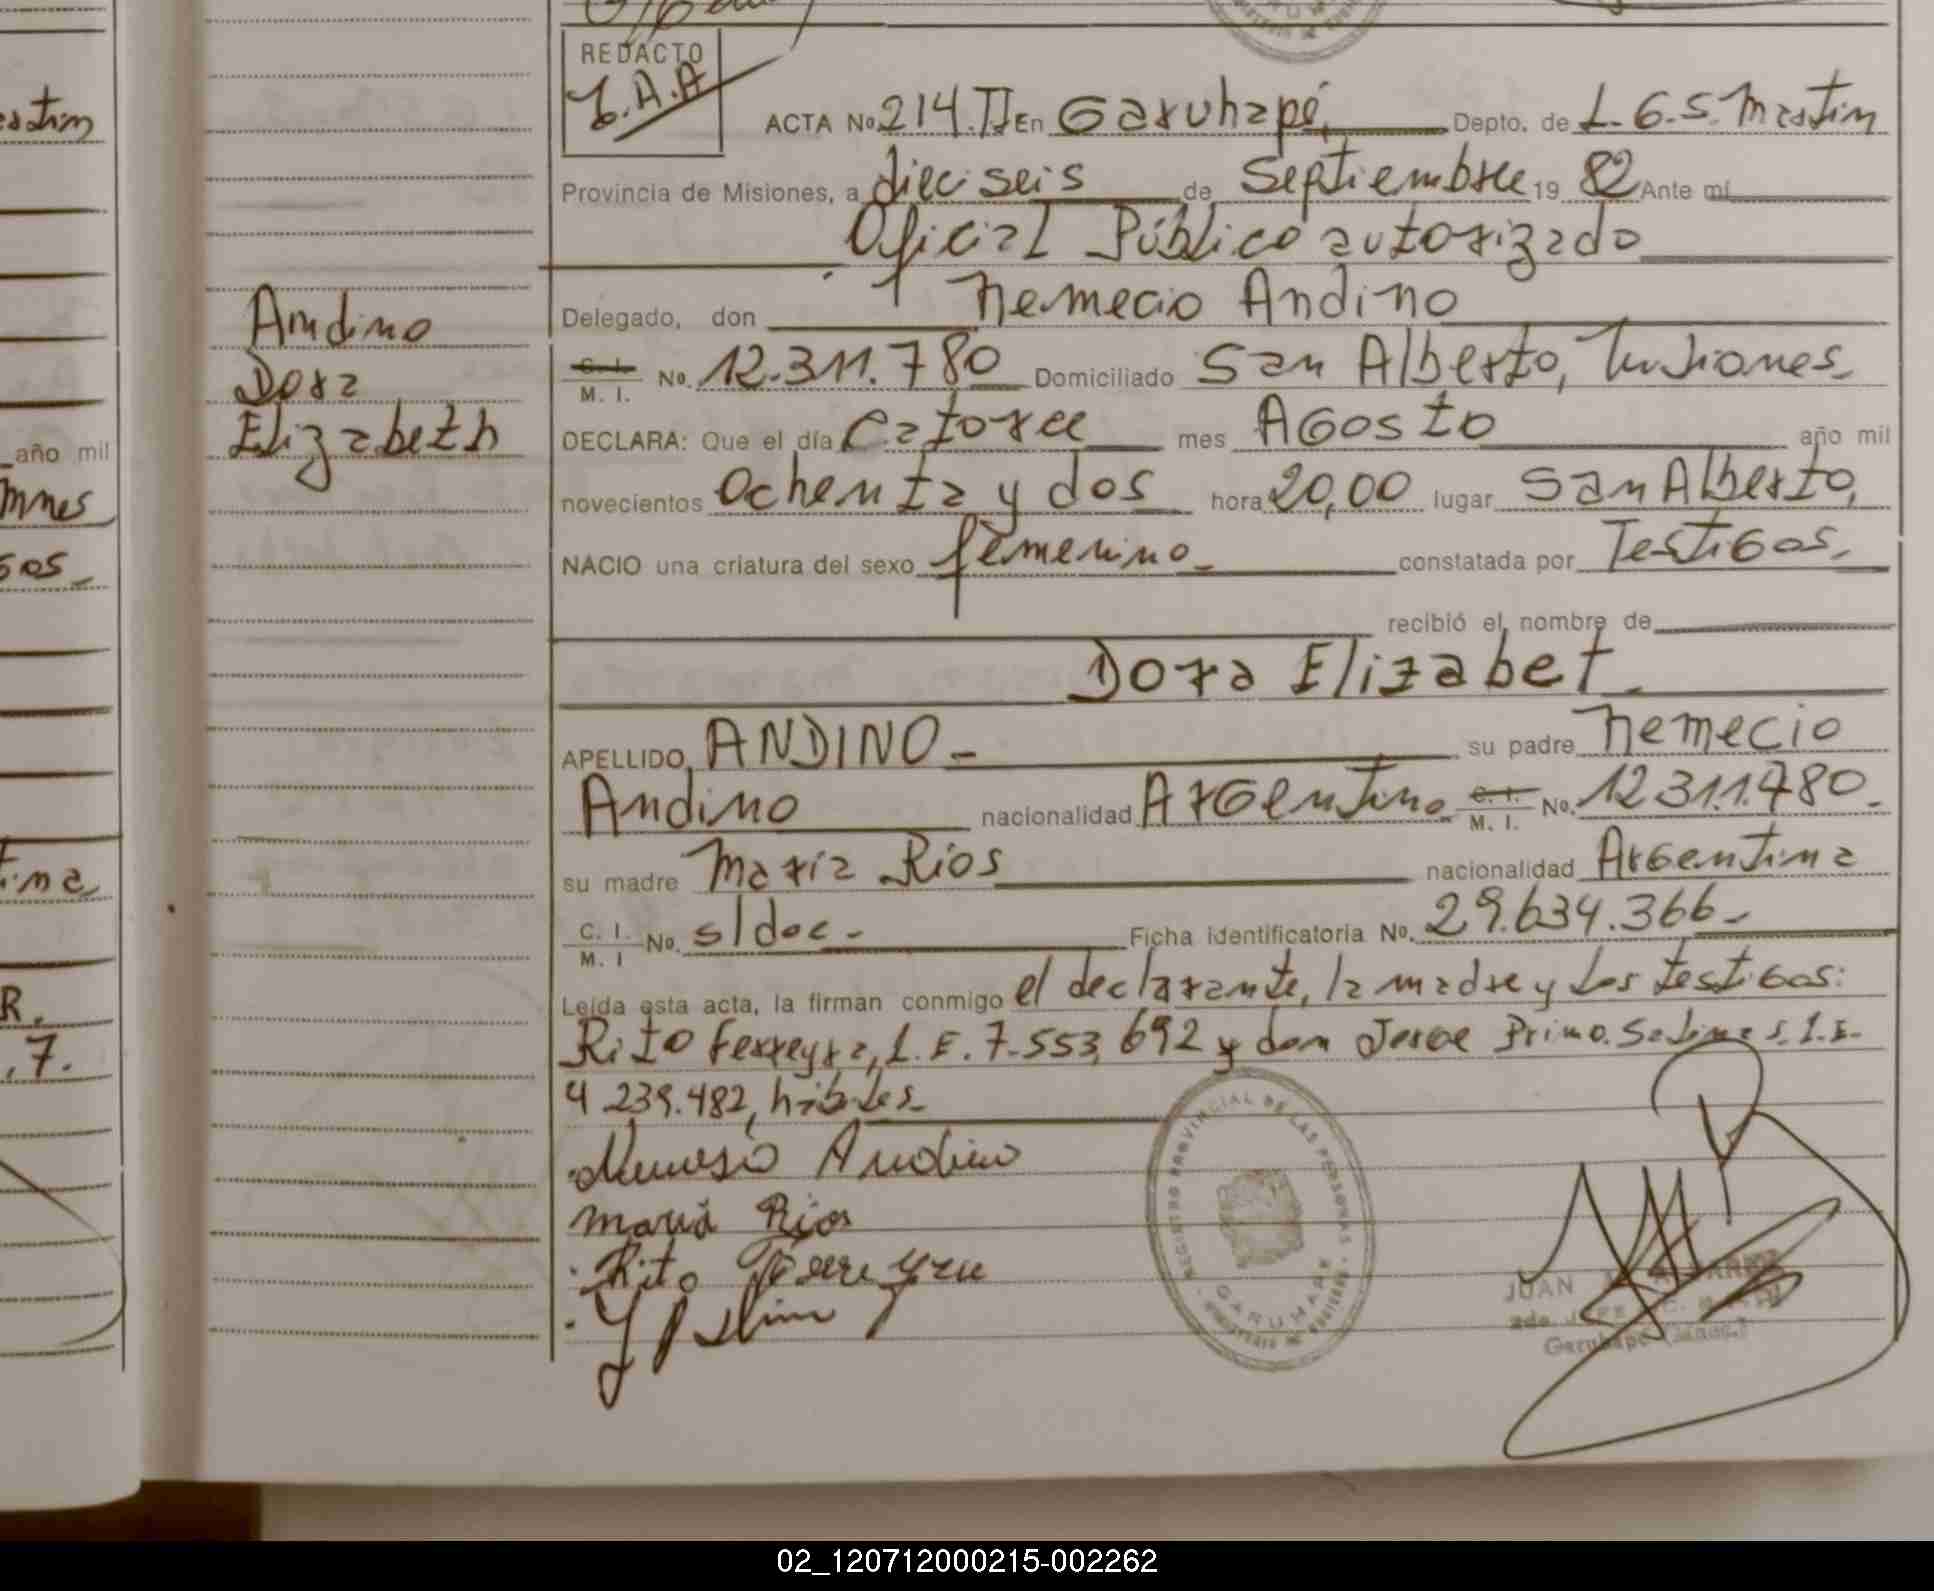 REDACTO
ACTA No. 214.II En Garuhapé, Depto. de L. G. S. Martin
Provincia de Misiones, a dieciseis de Septiembre 19 82 Ante mí
Oficial Público autorizado
Delegado, don Nemecio Andino
C. I. M. I. No. 12.311.780 Domiciliado San Alberto, Misiones.
DECLARA: Que el día Catorce mes Agosto año mil
novecientos Ochenta y dos hora 20,00 lugar San Alberto,
NACIO una criatura del sexo femenino constatada por Testigos.
recibió el nombre de
Dora Elizabet.
APELLIDO ANDINO su padre Nemecio
Andino nacionalidad Argentino C. I. M. I. No. 12.311.780.
su madre Maria Rios nacionalidad Argentina
C. I. M. I No. s/doc. Ficha identificatoria No. 29.634.366.
Leída esta acta, la firman conmigo el declarante, la madre y los testigos:
Rito Ferreyra, L. E. 7.553.692 y don Jorge Primo Salinas. L.E.
4 239.482, hábiles.
Andino
Dora
Elizabeth
Nemesio Andino
maria Rios
Rito Ferreyra
REGISTRO PROVINCIAL DE LAS PERSONAS
GARUHAPE
JUAN
Garuhape
astin
año mil
R.
.7.
02_120712000215-002262